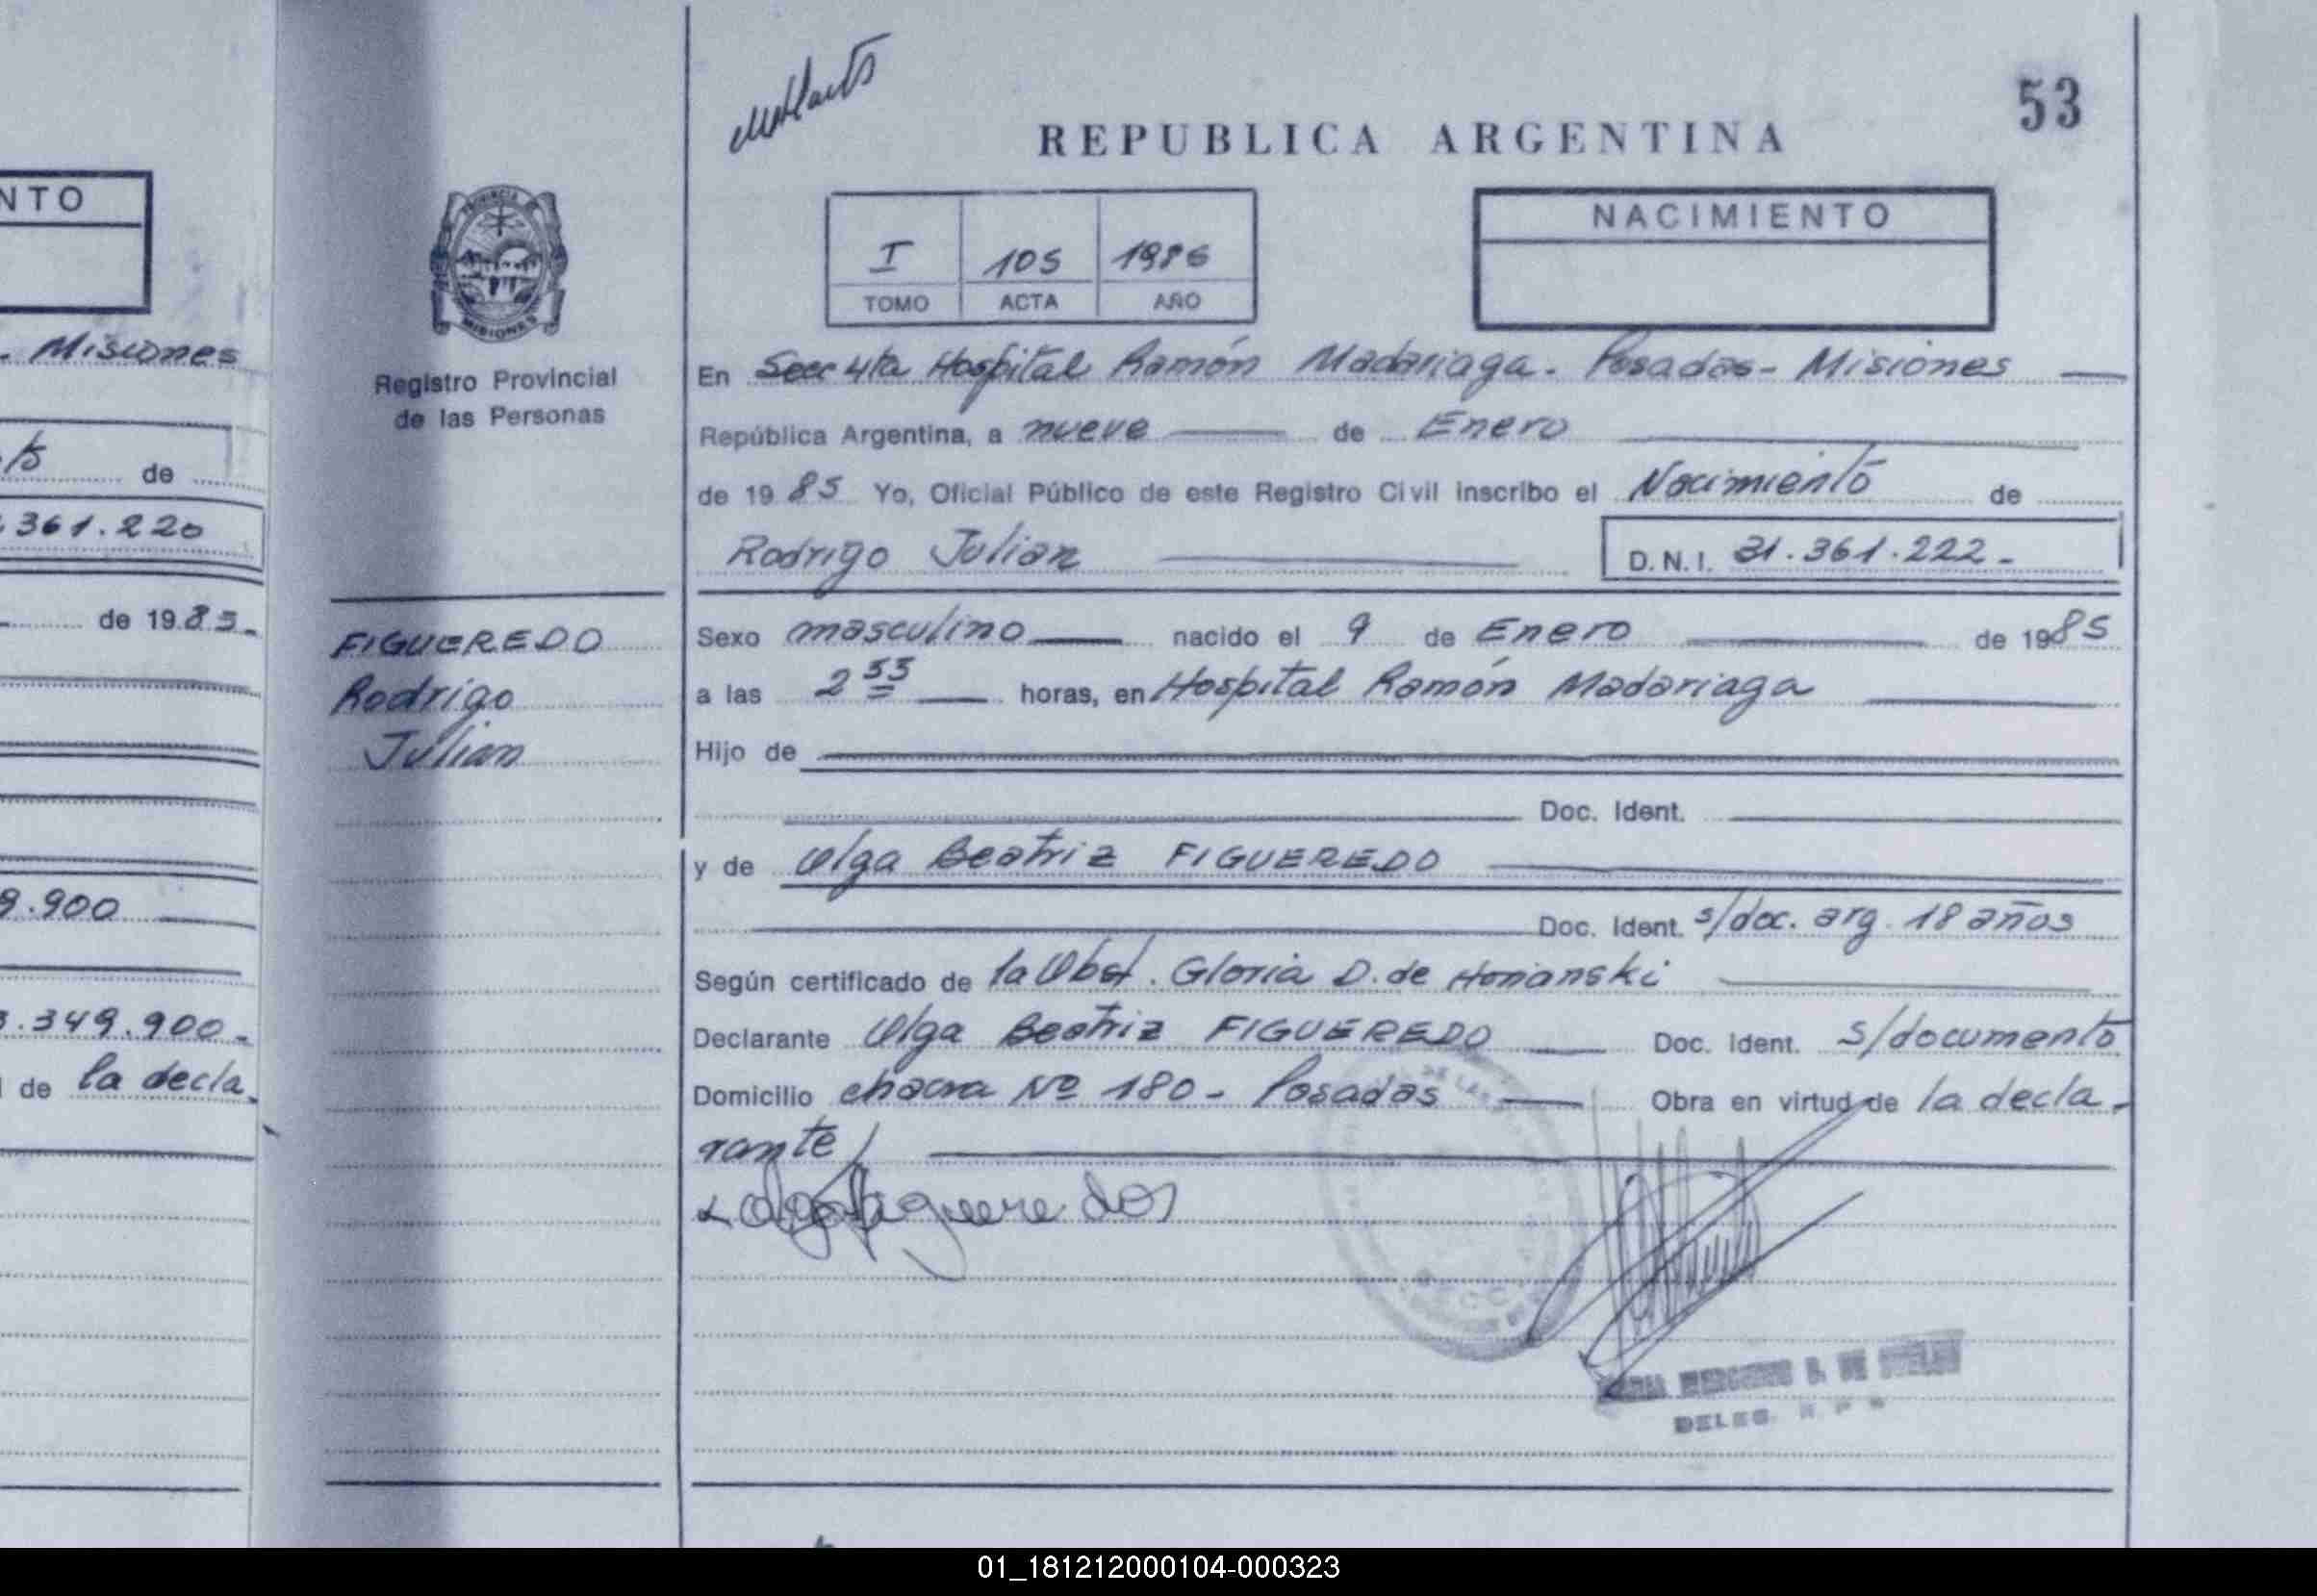 NTO
. Misiones
de
361.220
de 19.85.
9.900
3.349.900.
de la decla.
PROVINCIA
MISIONES
Registro Provincial
de las Personas
FIGUEREDO
Rodrigo
Julian
53
REPUBLICA ARGENTINA
I 105 1986
TOMO ACTA AÑO
NACIMIENTO
En Secc 4ta Hospital Ramón Madariaga - Posadas - Misiones
República Argentina, a nueve de Enero
de 19 85 Yo, Oficial Público de este Registro Civil inscribo el Nacimiento de
Rodrigo Julian D.N.I. 31.361.222.-
Sexo masculino nacido el 9 de Enero de 1985
a las 2 55 horas, en Hospital Ramón Madariaga
Hijo de
Doc. Ident.
y de Olga Beatriz FIGUEREDO
Doc. Ident. s/doc. arg. 18 años
Según certificado de la Obst. Gloria D. de
Declarante Olga Beatriz FIGUEREDO Doc. Ident. S/documento
Domicilio chacra Nº 180 - Posadas Obra en virtud de la decla-
rante
DELEG.
01_181212000104-000323